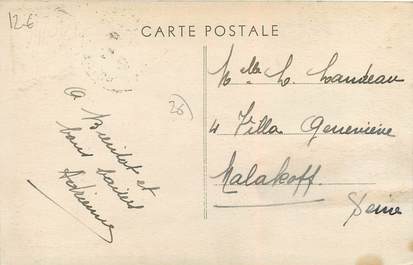 12€
CARTE POSTALE
26
A Bientôt et
bons baisers
Adrienne
Melle L. Landeau
4 Villa Geneviève
Malakoff.
Seine